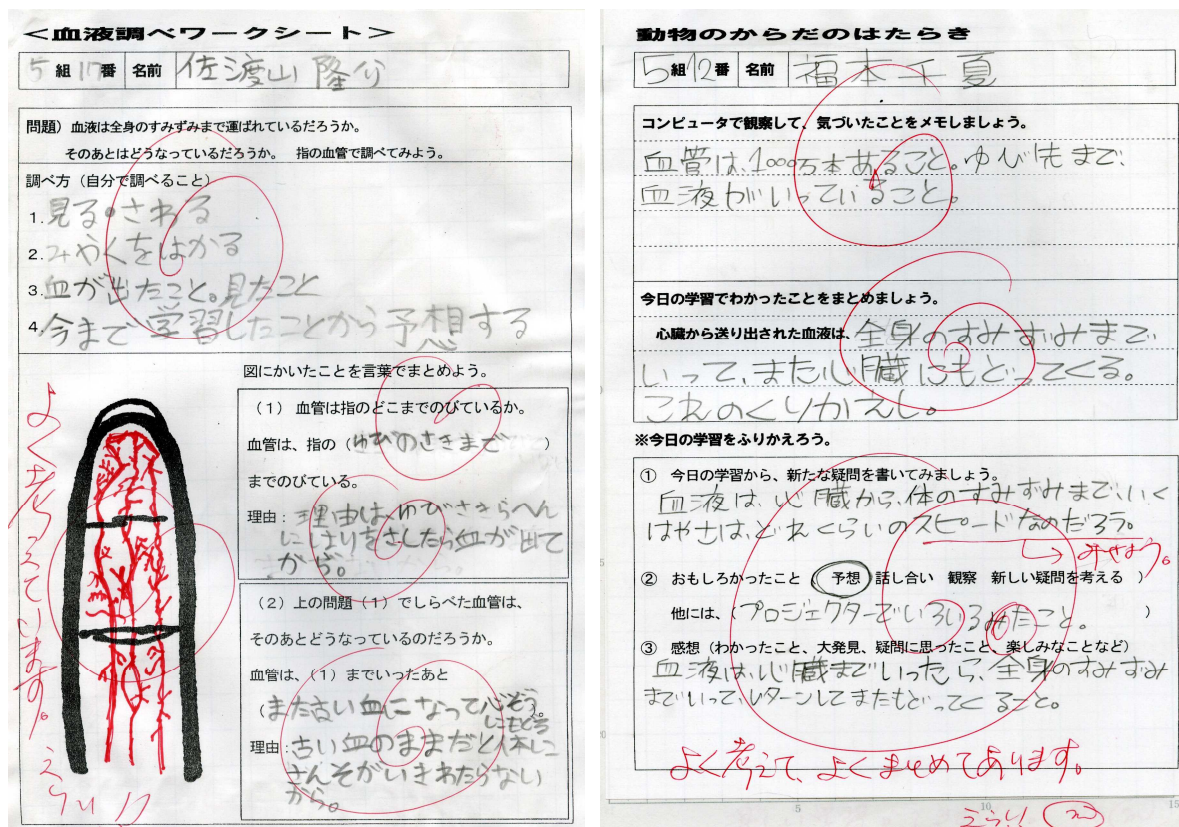 ＜血液調べワークシート＞
5組17番 名前 佐渡山 隆
問題）血液は全身のすみずみまで運ばれているだろうか。
そのあとはどうなっているだろうか。 指の血管で調べてみよう。
調べ方（自分で調べること）
1.見る・さわる
2.みゃくをはかる
3.血が出たこと。見たこと
4.今まで学習したことから予想する
図にかいたことを言葉でまとめよう。
（1） 血管は指のどこまでのびているか。
血管は、指の（ゆびのさきまで ）
までのびている。
理由：理由は、ゆびさきらへん
にはりをさしたら血が出て
から。
（2）上の問題（1）でしらべた血管は、
そのあとどうなっているのだろうか。
血管は、（1）までいったあと
（また古い血になって心ぞう
にもどる）。
理由：古い血のままだと体に
さんそがいきわたらない
から。
よく考えています。
えらい
動物のからだのはたらき
5組12番 名前 福本千夏
コンピュータで観察して、気づいたことをメモしましょう。
血管は、1000万本あること。ゆび先まで、
血液がいっていること。
今日の学習でわかったことをまとめましょう。
心臓から送り出された血液は、全身のすみずみまで
いって、また心臓にもどってくる。
これのくりかえし。
※今日の学習をふりかえろう。
① 今日の学習から、新たな疑問を書いてみましょう。
血液は、心臓から、体のすみずみまで、いく
はやさは、どれくらいのスピードなのだろう。
→みせよう。
② おもしろかったこと（ 予想 話し合い 観察 新しい疑問を考える ）
他には、（プロジェクターでいろいろみたこと。 ）
③ 感想（わかったこと、大発見、疑問に思ったこと、楽しみなことなど）
血液は、心臓までいったら、全身のすみずみ
までいって、Uターンしてまたもどってくること。
よく考えて、よくまとめてあります。
えらい
5 10 15